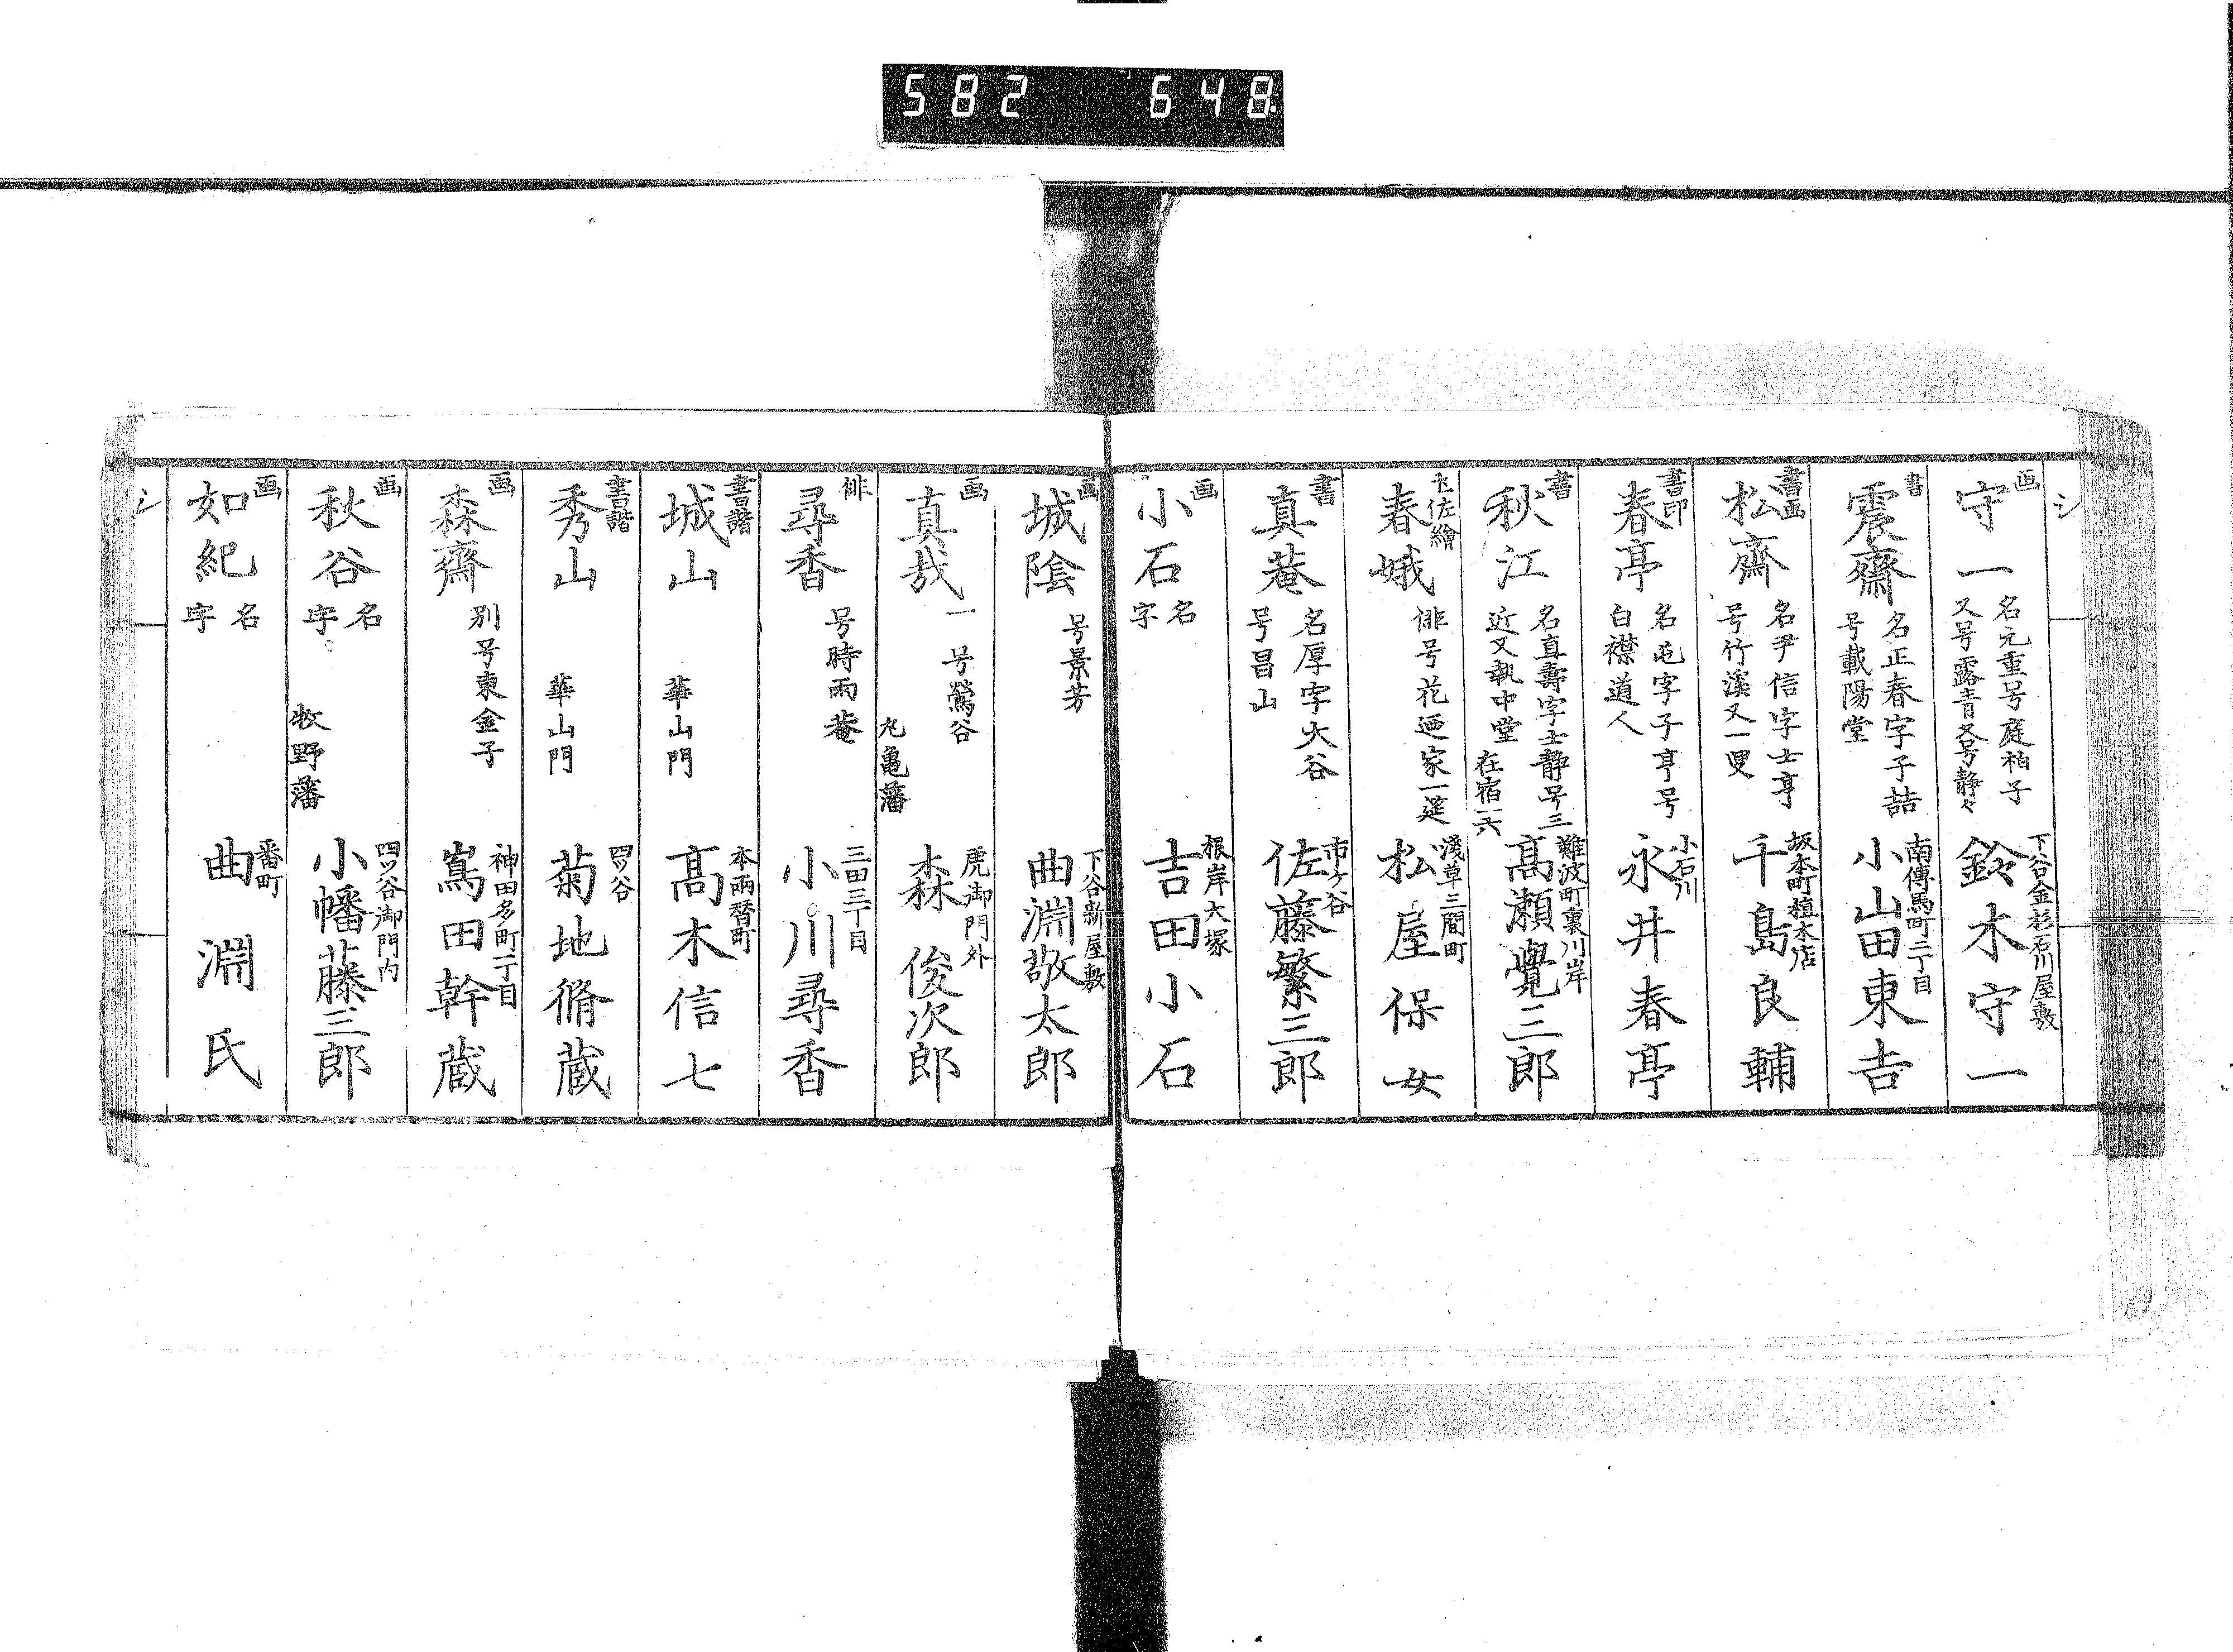 582 648
シ
画
守一
名元重号庭柏子
又号露青又号静々
下谷金杉石川屋敷
鈴木守一
書
震齋
名正春字子喆
号載陽堂
南傳馬町二丁目
小山田東吉
書画
松齋
名尹信字士亨
号竹溪又一叟
坂本町植木店
千島良輔
書印
春亭
名屯字子亨号
白襟道人
小石川
永井春亭
書
秋江
名直壽字士静号三
近又執中堂
在宿一六
難波町裏川岸
高瀬覺三郎
土佐繪
春娥
俳号花廼家一莚
淺草三間町
松屋保女
書
真菴
名厚字大谷
号昌山
市ヶ谷
佐藤繁三郎
画
小石
名
字
根岸大塚
吉田小石
画
城陰
号景芳
下谷新屋敷
曲淵敬太郎
画
真哉
一号鶯谷
丸亀藩
虎御門外
森俊次郎
俳
尋香
号時雨菴
三田三丁目
小川尋香
書諧
城山
華山門
本両替町
高木信七
書諧
秀山
華山門
四ッ谷
菊地脩蔵
画
森齋
別号東金子
神田多町一丁目
嶌田幹蔵
画
秋谷
名
字
牧野藩
四ッ谷御門内
小幡藤三郎
画
如紀
名
字
番町
曲淵氏
シ